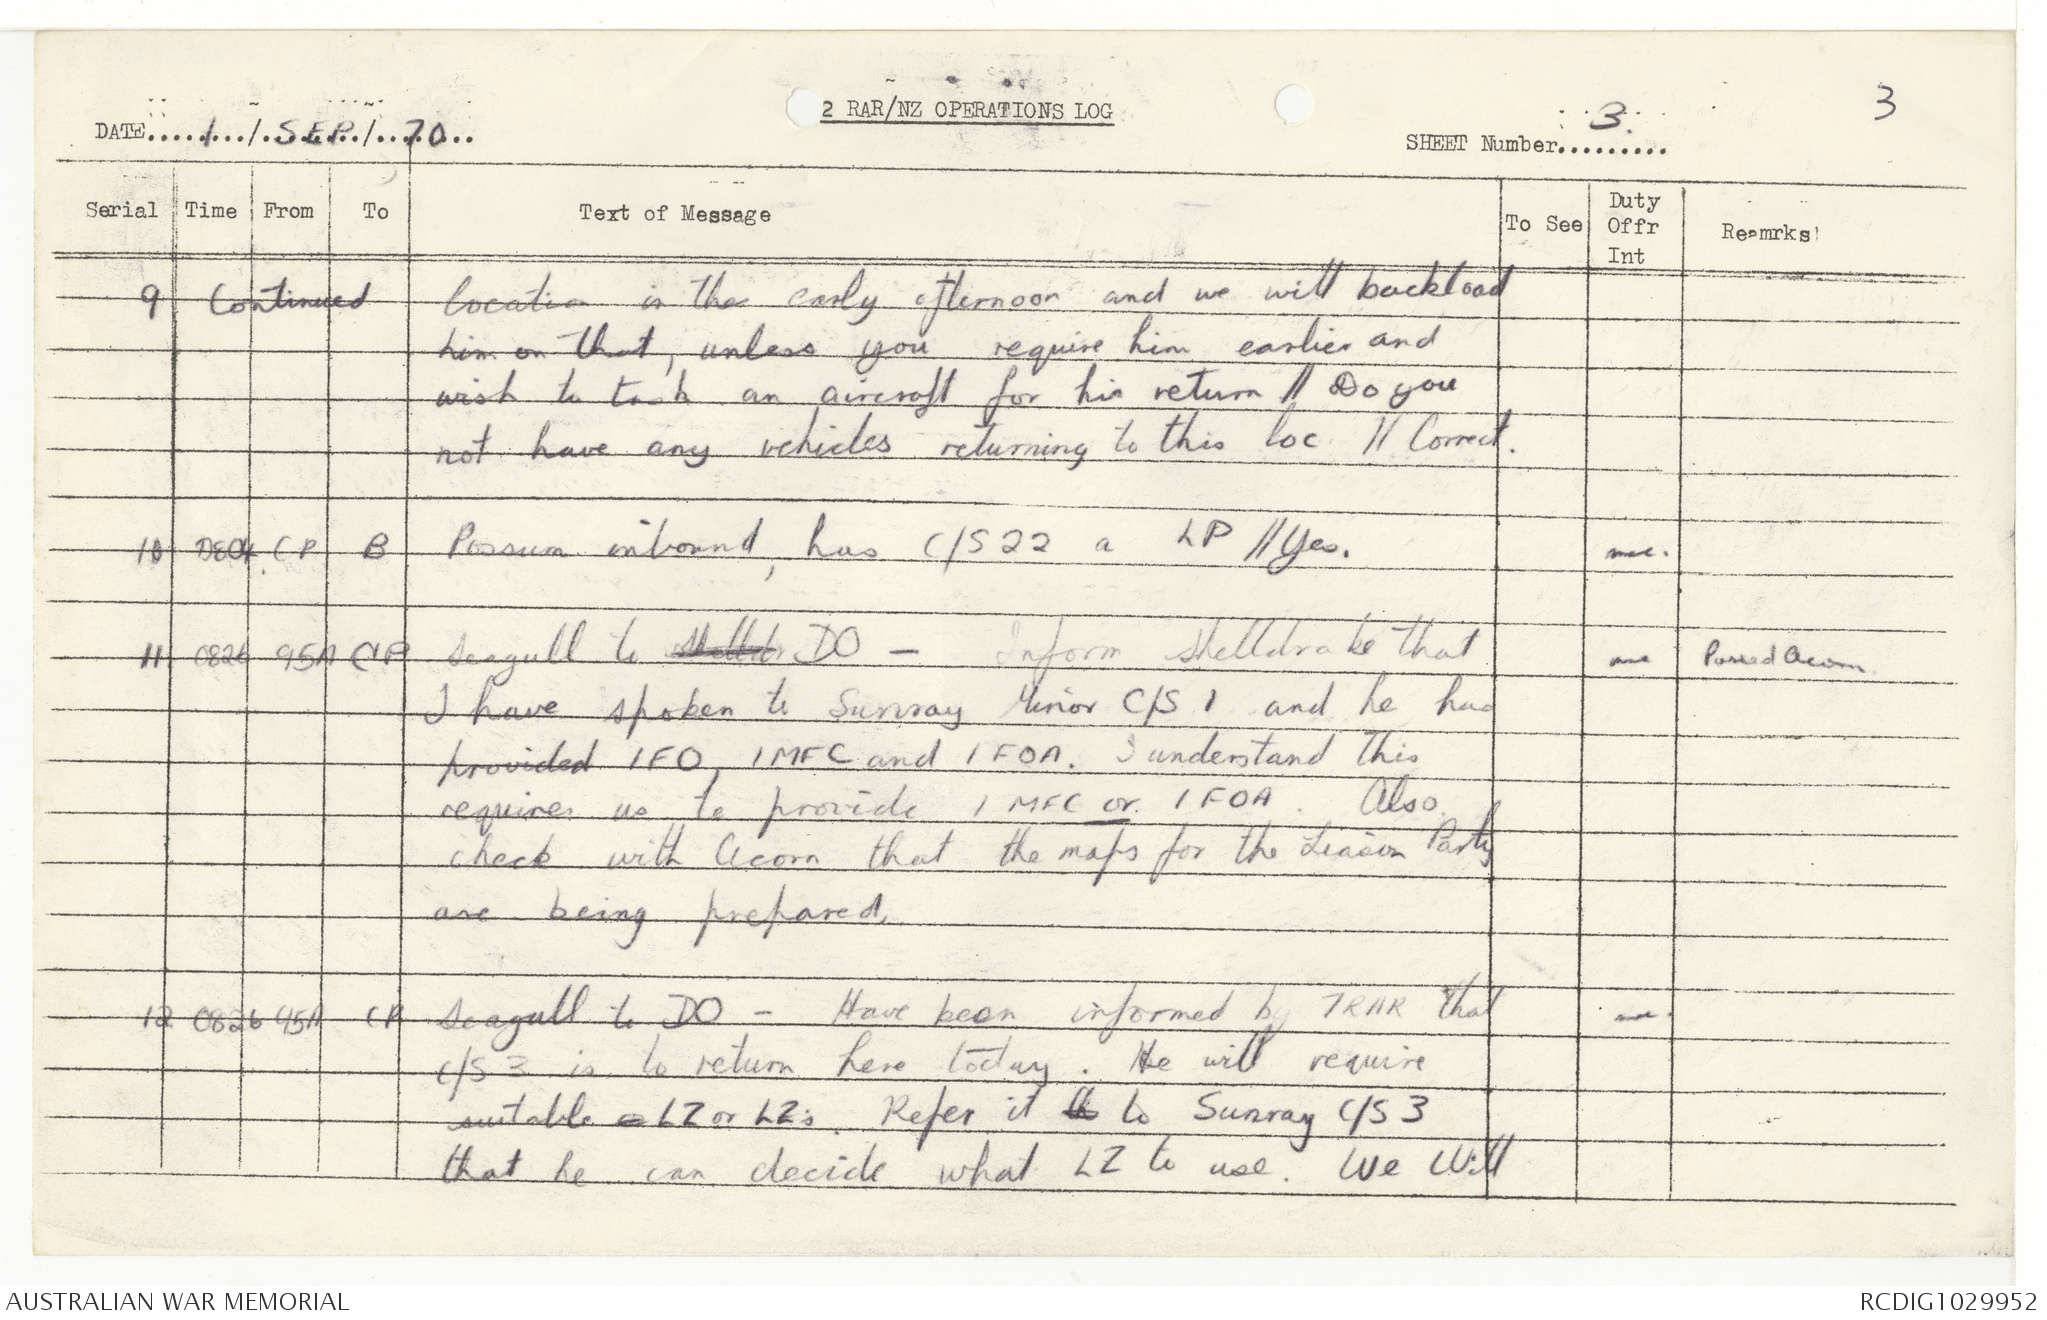 3
2 RAR/NZ OPERATIONS LOG
DATE.....1.../.SEP./..70...
SHEET Number...3.....
Serial Time From To Text of Message To See Duty Offr Int Reamrks
9 Continued location in the early afternoon and we will backload
him on that, unless you require him earlier and
wish to task an aircraft for his return // Do you
not have any vehicles returning to this loc // Correct.
10 0804 CP B Possum inbound, has C/S 22 a LP // Yes.
11 0826 95A CP Seagull to DO - Inform shelldrake that Passed Acorn
I have spoken to Sunray Minor C/S 1 and he has
provided 1 FO, 1 MFC and 1 FOA. I understand this
requires us to provide 1 MFC or 1 FOA. Also
check with Acorn that the maps for the Liaison Party
are being prepared.
12 0826 95A CP Seagull to DO - Have been informed by 7RAR that
C/S 3 is to return here today. He will require
suitable LZ or LZ's. Refer it to Sunray C/S 3
that he can decide what LZ to use. We Will
AUSTRALIAN WAR MEMORIAL
RCDIG1029952